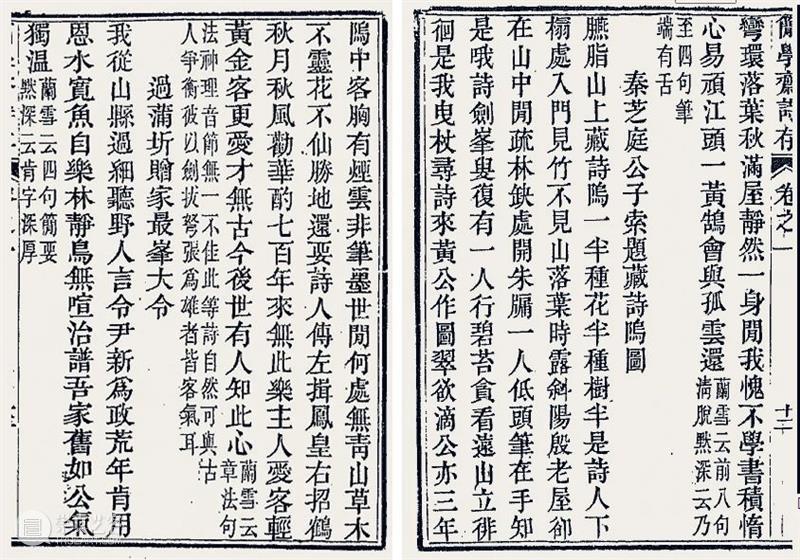 簡學齋詩存
卷之一
十二
彎環落葉秋滿屋靜然一身閒我愧不學書積惰
心易頑江頭一黃鵠會與孤雲還
蘭雪云前八句
清脫默深云乃
至四句筆
端有舌
秦芝庭公子索題藏詩隝圖
臙脂山上藏詩隝一半種花半種樹半是詩人下
榻處入門見竹不見山落葉時露斜陽殷老屋卻
在山中閒疏林缺處開朱牖一人低頭筆在手知
是哦詩劍峯叟復有一人行碧苔貪看遠山立徘
徊是我曳杖尋詩來黃公作圖翠欲滴公亦三年
隝中客胸有煙雲非筆墨世閒何處無青山草木
不靈花不仙勝地還要詩人傳左揖鳳皇右招鶴
秋月秋風勸華酌七百年來無此樂主人愛客輕
黃金客更愛才無古今後世有人知此心
蘭雪云
章法句
法神理音節無一不佳此等詩自然可與古
人爭衡彼以劍拔弩張爲雄者皆客氣耳
過蒲圻贈家最峯大令
我從山縣過細聽野人言令尹新爲政荒年肯用
恩水寬魚自樂林靜鳥無喧治譜吾家舊如公氣
獨溫
蘭雪云四句簡要
默深云肯字深厚